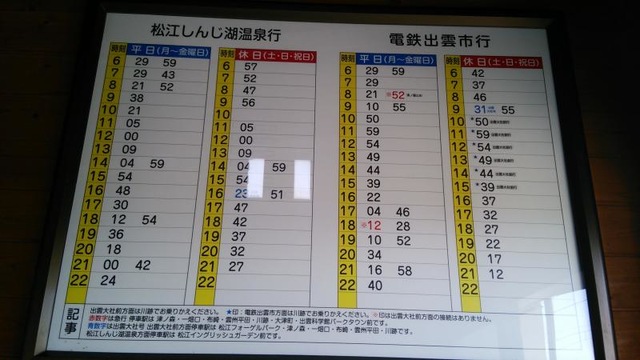 松江しんじ湖温泉行
時刻 平日(月～金曜日)
6 29 59
7 29 43
8 21 52
9 38
10 21
11 05
12 00
13 09
14 04 59
15 54
16 48
17 30
18 12 54
19 36
20 18
21 00 42
22 24
時刻 休日(土・日・祝日)
6 57
7 52
8 47
9 56
10
11 05
12 00
13 09
14 04 59
15 54
16 23 51
17 47
18 42
19 37
20 32
21 27
22
電鉄出雲市行
時刻 平日(月～金曜日)
6 29 59
7 29
8 21 ※52
9 10 55
10 50
11 59
12 54
13 49
14 44
15 39
16 22
17 04 46
18 ※12 28
19 10 52
20 34
21 16 58
22 40
時刻 休日(土・日・祝日)
6 42
7 37
8 46
9 31 55
10 ★50 出雲大社前行
11 ★59 出雲大社前行
12 ★54 出雲大社前行
13 ★49 出雲大社前行
14 ★44 出雲大社前行
15 ★39 出雲大社前行
16 37
17 32
18 27
19 22
20 17
21 12
22
記事
出雲大社前方面は川跡でお乗りかえください。 ★印：電鉄出雲市方面は川跡でお乗りかえください。 ※印は出雲大社前方面の接続はありません。
赤数字は急行 停車駅は 津ノ森・一畑口・布崎・雲州平田・川跡・大津町・出雲科学館パークタウン前です。
青数字は出雲大社号 出雲大社前方面停車駅は 松江フォーゲルパーク・津ノ森・一畑口・布崎・雲州平田・川跡です。
松江しんじ湖温泉方面停車駅は 松江イングリッシュガーデン前です。